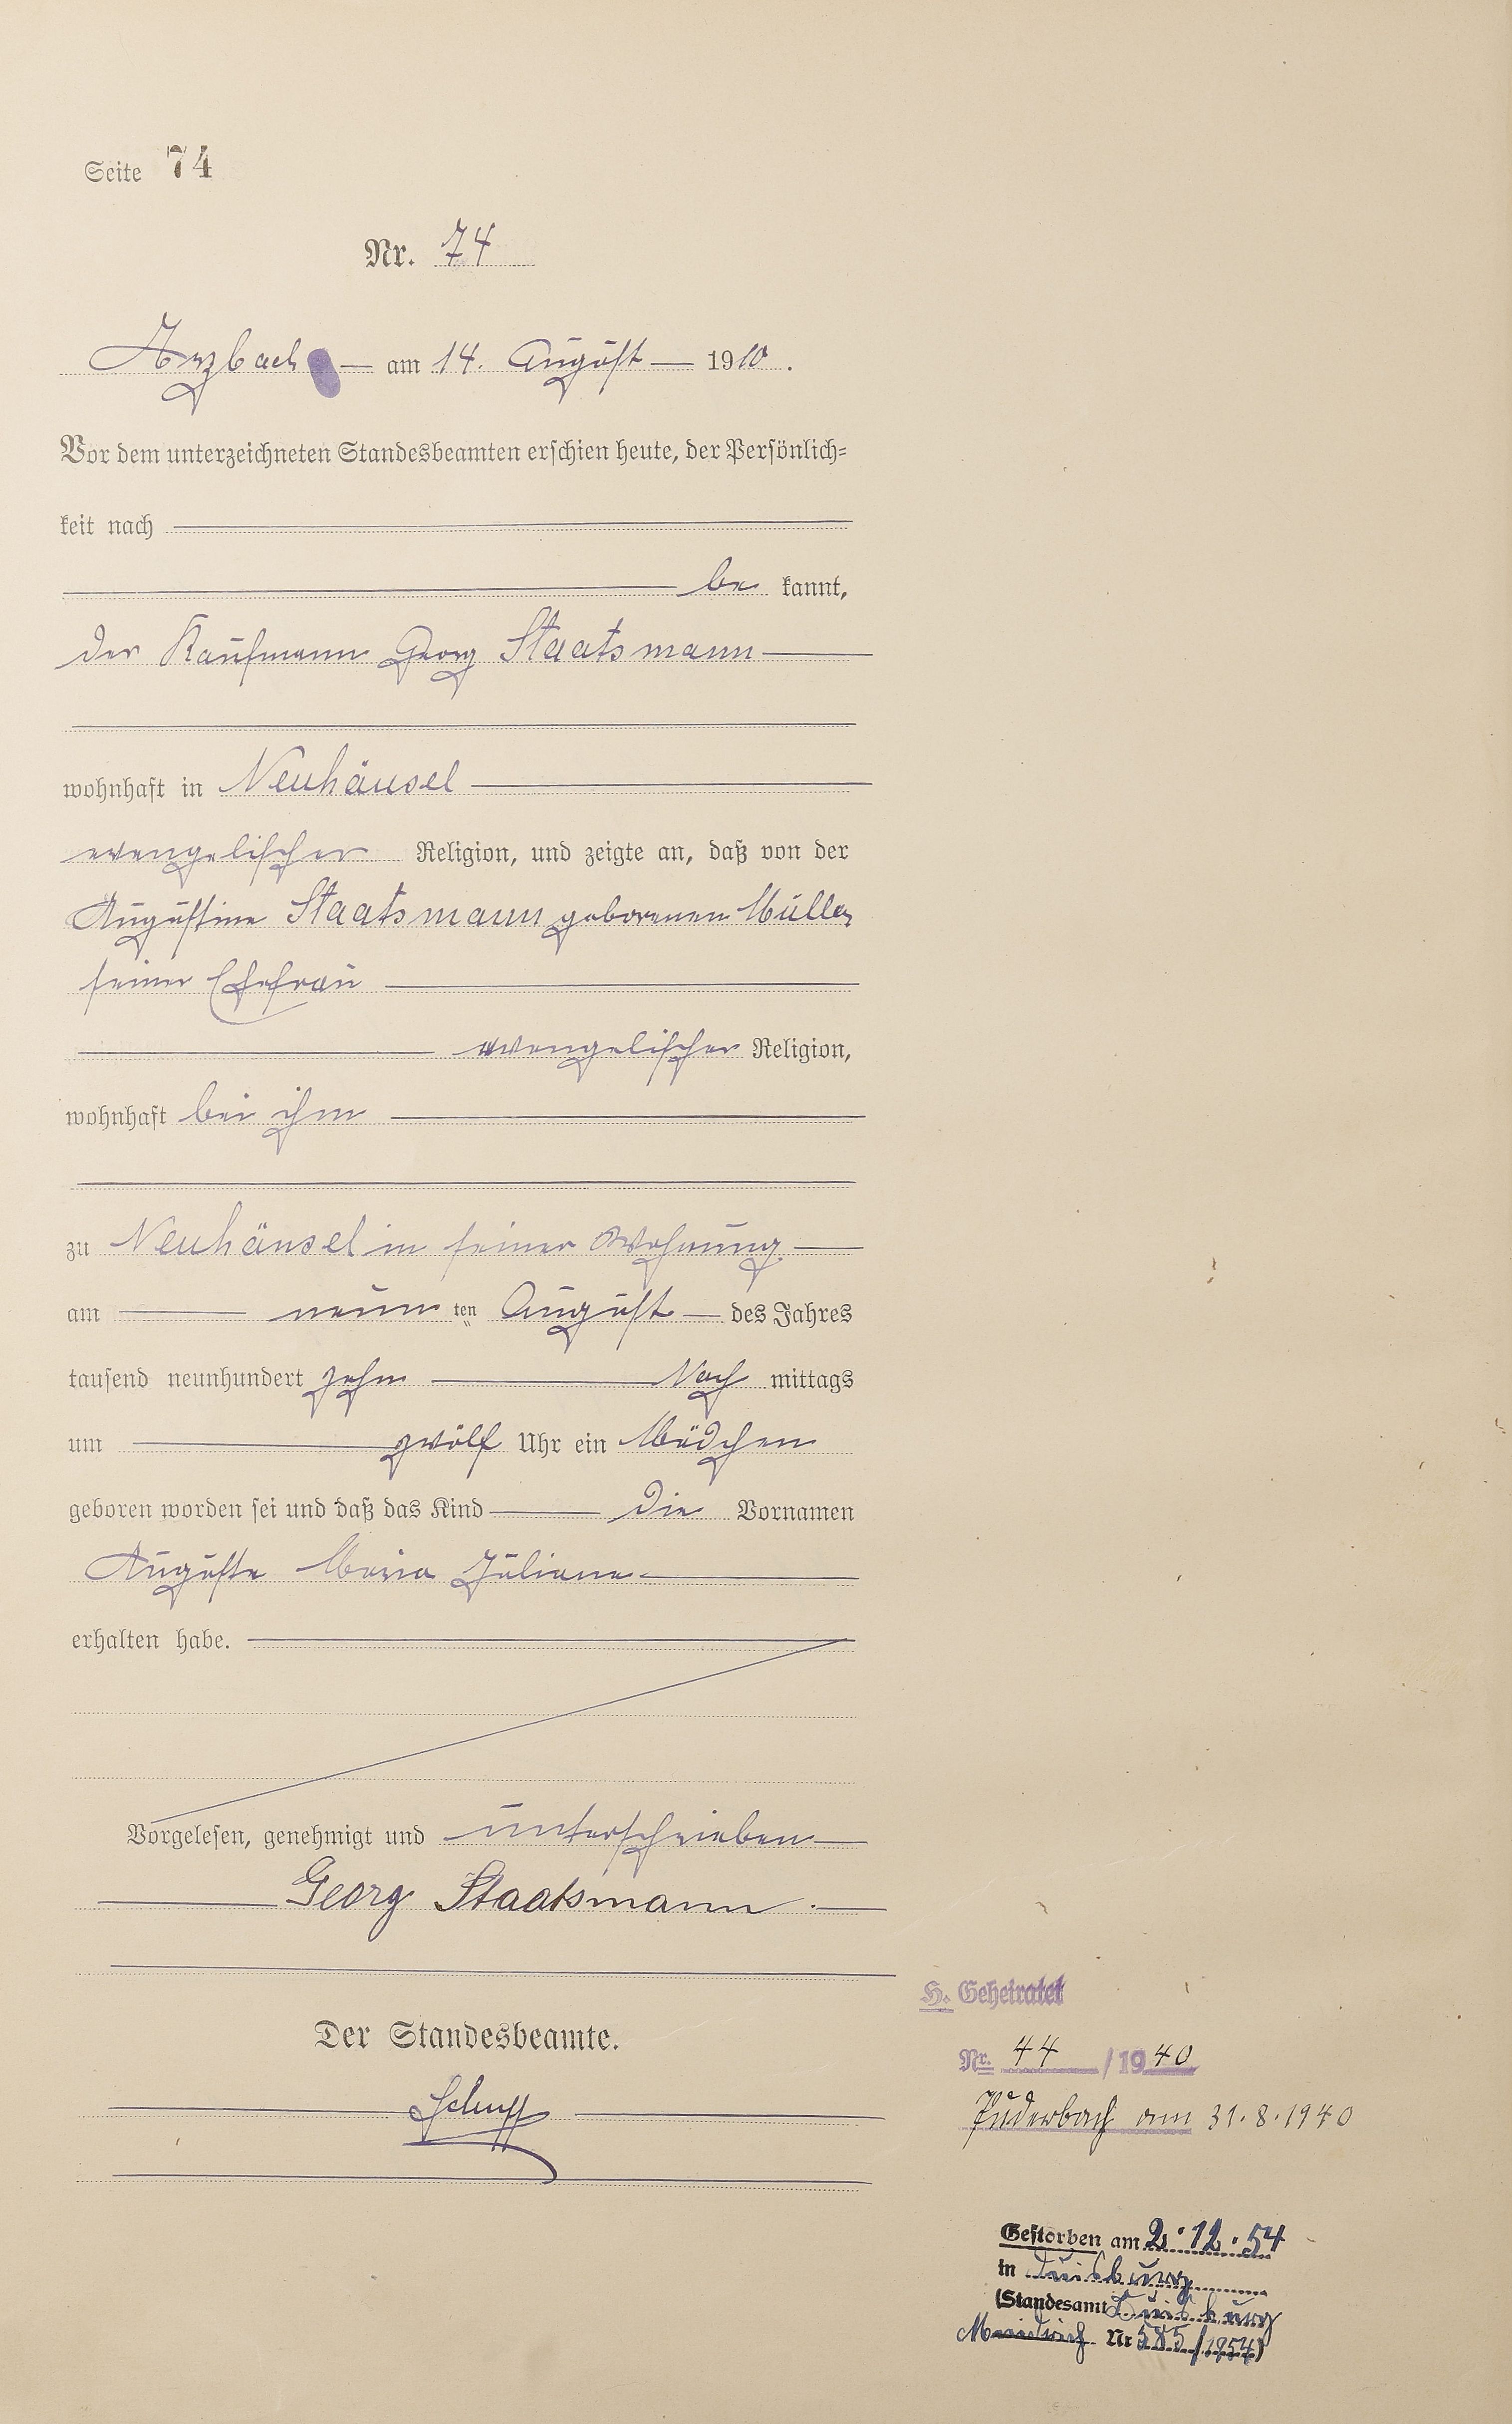 Seite 74
Nr. 74
Arzbach — am 14. August — 1910.
Vor dem unterzeichneten Standesbeamten erschien heute, der Persönlich=
keit nach
be kannt,
der Kaufmann Georg Staatsmann
wohnhaft in Neuhäusel
evangelischer Religion, und zeigte an, daß von der
Augustine Staatsmann geborenen Müller
seiner Ehefrau
evangelischer Religion,
wohnhaft bei ihm
zu Neuhäusel in seiner Wohnung
am neun ten August — des Jahres
tausend neunhundert zehn Nach mittags
um zwölf Uhr ein Mädchen
geboren worden sei und daß das Kind die Vornamen
Auguste Maria Juliane
erhalten habe.
Vorgelesen, genehmigt und unterschrieben
Georg Staatsmann
Der Standesbeamte.
Schupp
H. Geheiratet
Nr. 44 /1940
Puderbach am 31.8.1940
Gestorben am 2.12.54
in Duisburg
(Standesamt Duisburg
Nr 585/1954)